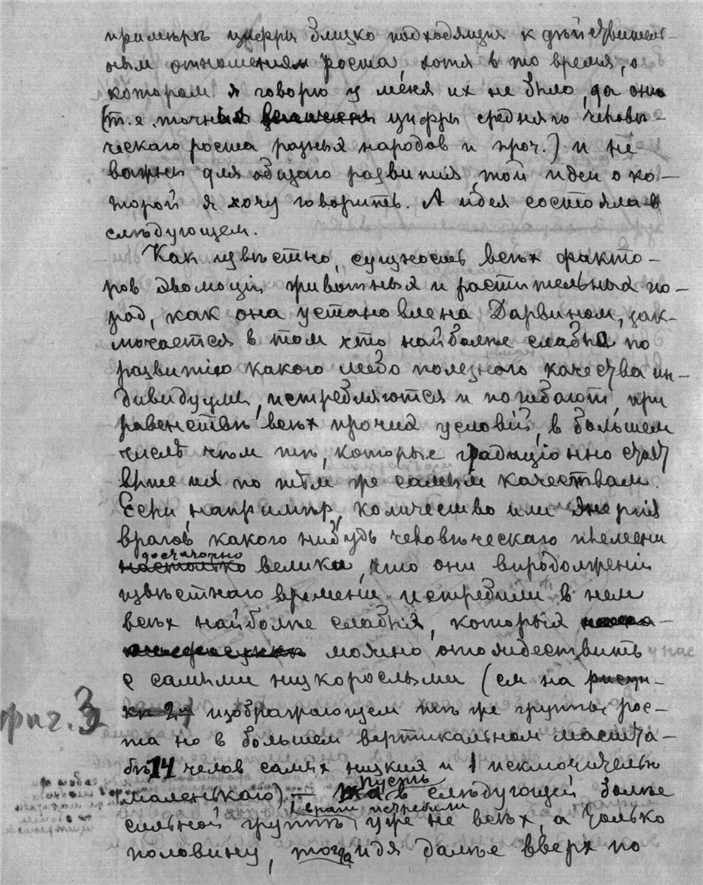 примѣръ цифры близко подходящія к дѣйствитель-
ным отношеніям роста, хотя в то время, о
котором я говорю у меня их не было, да они
(т. е. точныя цифры средняго человѣ-
ческаго роста разных народов и проч.) и не
важны для общаго развитія той идеи о ко-
торой я хочу говорить. А идея состояла в
слѣдующем.
Как извѣстно, сущность всѣх факто-
ров эволюціи животных и растительных по-
род, как она установлена Дарвином, зак-
лючается в том что наиболѣе слабые по
развитію какого либо полезного качества ин-
дивидуумы, истребляются и погибают, при
равенствѣ всѣх прочих условій, в большем
числѣ чѣм тѣ, которые традиціонно стоят
выше их по тѣм же самым качествам.
Если, напримѣр, количество или энергія
врагов какого нибудь человѣческаго племени
достаточно
настолько велики, что они впродолженіи
извѣстнаго времени истребили в нем
всѣх наиболѣе слабых, которых
можно отождествить
с самыми низкорослыми (см на рисун-
кѣ 2
фиг. 3 изображающем тѣ же группы рос-
та но в большем вертикальном масшта-
бѣ 14 челов самых низких и 1 исключительно
маленькаго). Пусть в слѣдующей болѣе
враги истребили
сильной группѣ уже не всѣх, а только
половину, тогда идя далѣе вверх по